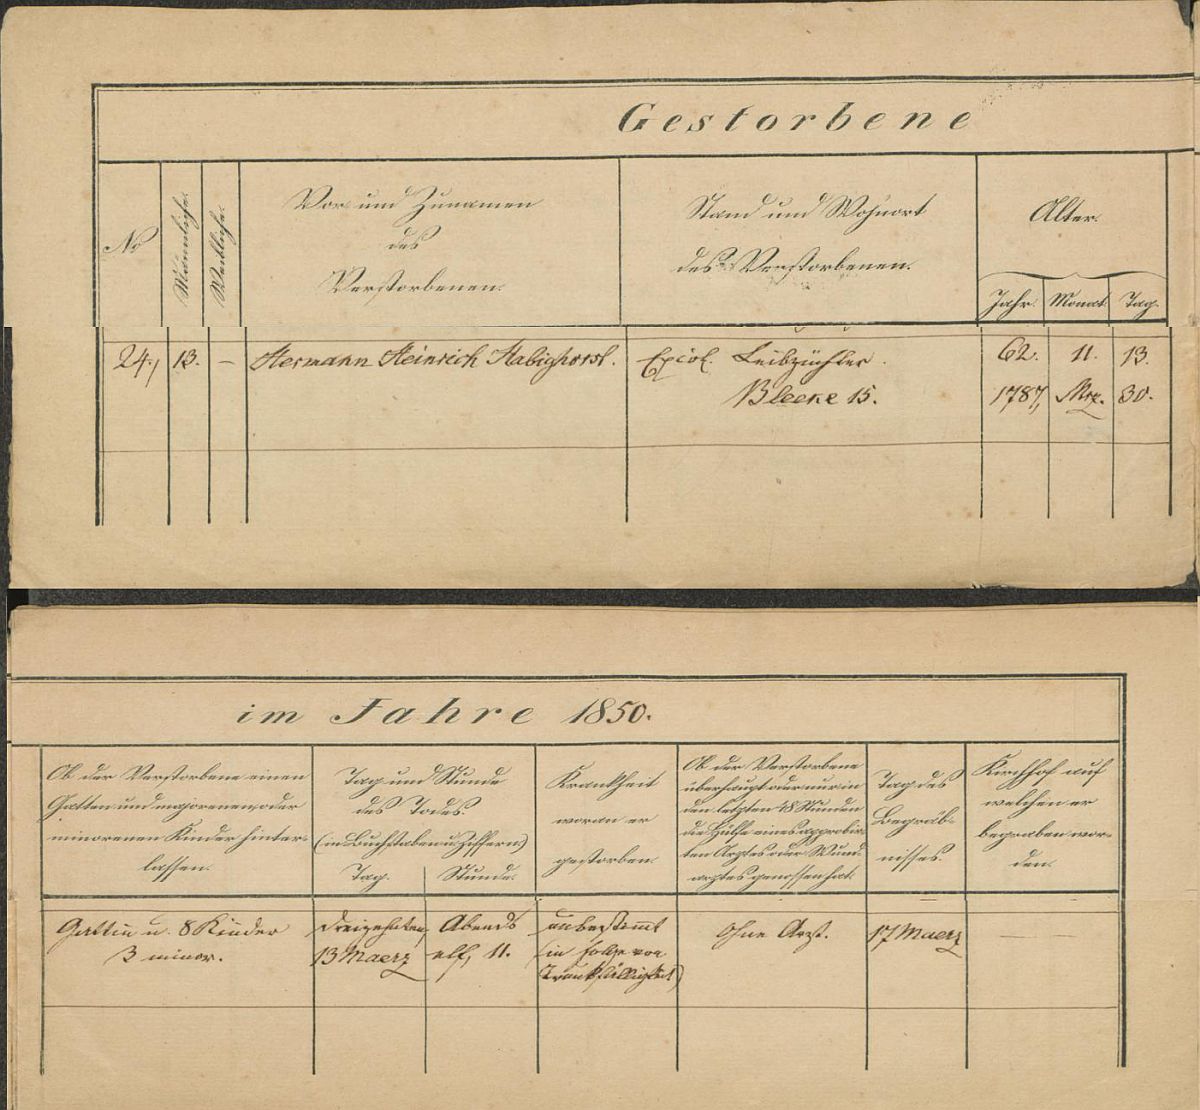 Gestorbene
No
Männliche.
Weibliche.
Vor- und Zunamen
des
Verstorbenen.
Stand und Wohnort
des Verstorbenen.
Alter.
Jahr. Monat. Tag.
24., 13. – Hermann Heinrich Habighorst. Leibzüchter. 62. 11. 13.
15. 1787, Mrz. 30.
im Jahre 1850.
Ob der Verstorbene einen
Gatten und majorenen oder
minorenen Kinder hinter-
lassen.
Tag und Stunde
des Todes.
(in Buchstaben u. Ziffern.)
Tag. Stunde.
Krankheit
woran er
gestorben.
Ob der Verstorbene
überhaupt oder nur in
den letzten 48 Stunden
die Hülfe eines approbir-
ten Arztes oder Wund-
arztes genossen hat.
Tag des
Begräb-
nisses.
Kirchhof auf
welchen er
begraben wor-
den.
Gattin u. 8 Kinder dreizehnten, Abends unbestimmt ohne Arzt. 17 Maerz
3 minor. 13 Maerz elf, 11. (in Folge von